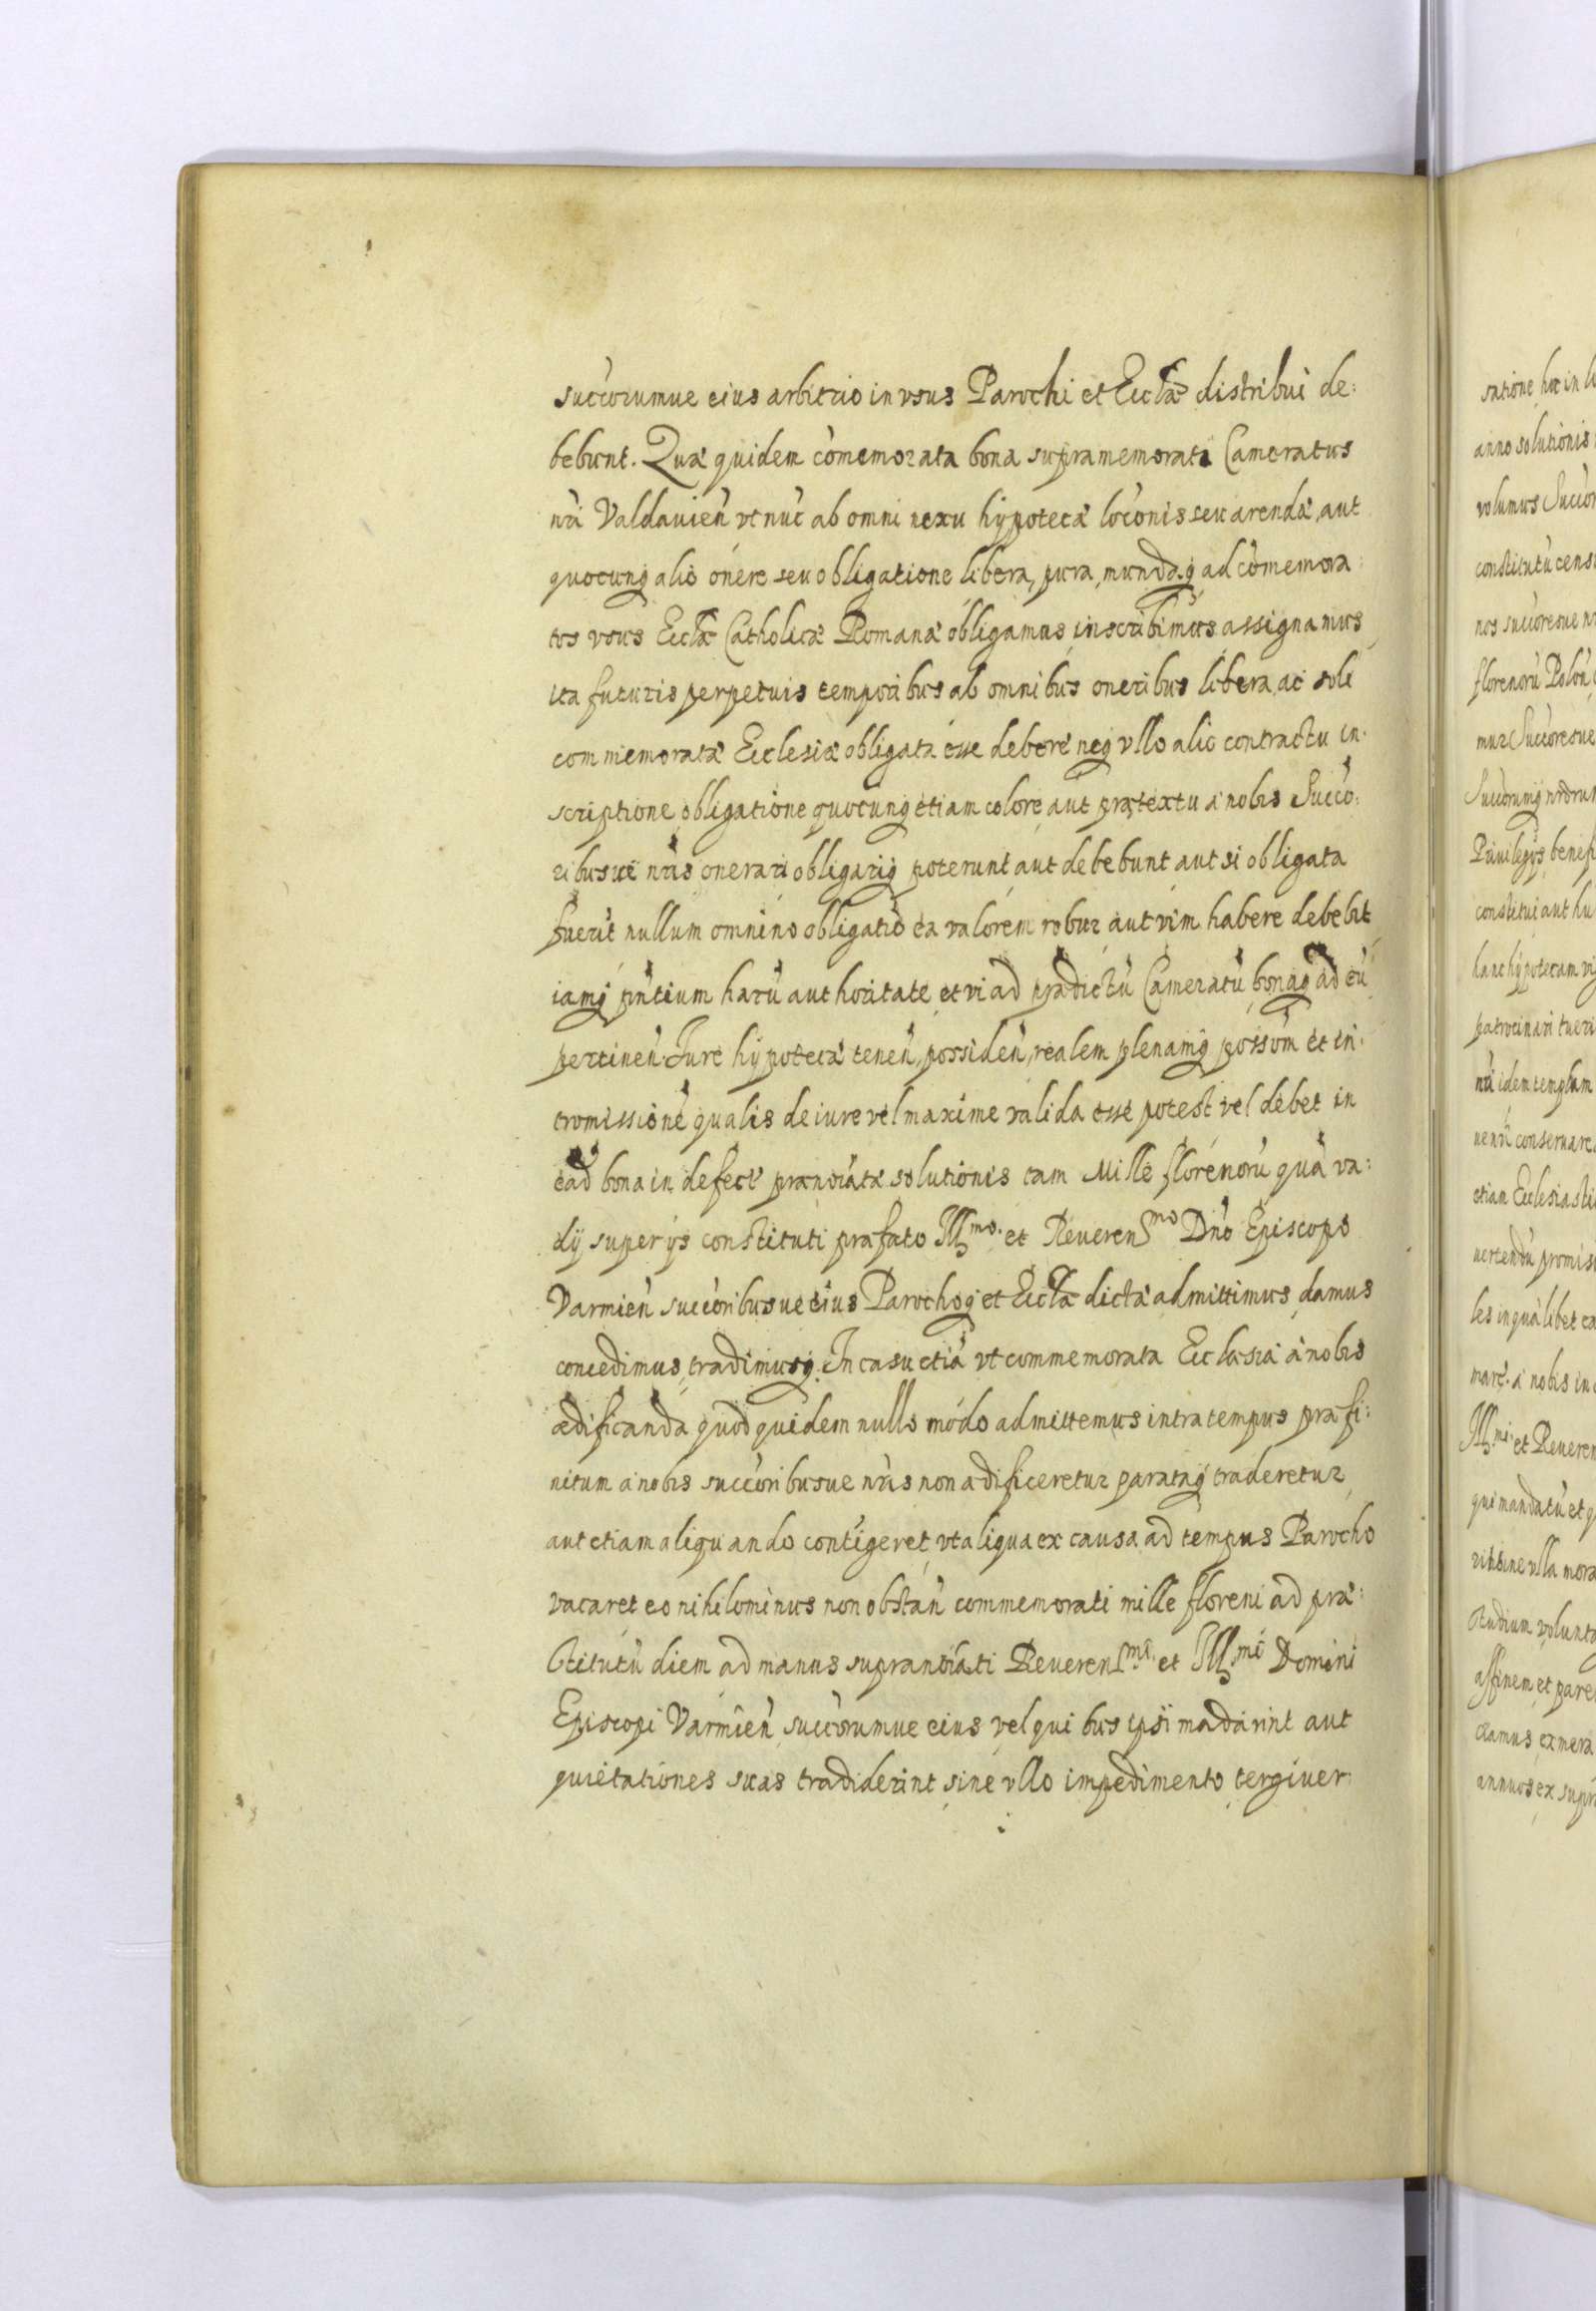 succorumue eius arbitrio in vsus Parochi et Eccłæ distribui de:
bebunt. Quæ quidem com̄emorata bona supramemorati Cameratus
nr̄i Valdauień vt nuc̄ ab omni nexu hypotecæ loc̄onis seu arendæ, aut
quocunq̨ alio onere seu obligatione libera, pura, mundaq̨ ad com̄emora:
tos vsus Eccłæ Catholicæ Romanæ obligamus, inscribimus assignamus,
ita futuris perpetuis temporibus ab omnibus oneribus libera, ac soli
commemoratæ Ecclesiæ obligata esse debere neq̨ vllo alio contractu in:
scriptione, obligatione quocunq̨ etiam colore, aut prætextu à nobis Succo:
ribusue nr̄is onerari obligariq̨ poterunt aut debebunt aut si obligata
fuerit nullum omnino obligatio ea valorem robur aut vim habere debebit
iamq̨ pn̄tium harū authoritate, et vi ad prædictū Cameratū bonaq̨ ad eū
pertineń Jure hypotecæ teneń, possideń, realem plenamq̨ possom̄ et in:
tromissionē qualis de iure vel maxime valida esse potest vel debet in
ead̄ bona in defectū prænoīatæ solutionis tam Mille florenorū quā va:
dij superijs constituti præfato Illmo. et Reuerenmo Dn̄o Episcopo
Varmień succoribusue eius Parochoq̨ et Eccłæ dictæ admittimus, damus
concedimus, tradimusq̨. In casu etiā vt commemorata Ecclesia à nobis
ædificanda quod quidem nullo modo admittemus intra tempus præfi:
nitum a nobis succoribusue nr̄is non ædificeretur parataq̨ traderetur,
aut etiam aliquando contigeret, vt aliqua ex causa ad tempus Parocho
vacaret eo nihilominus non obstań commemorati mille floreni ad præ:
stitutū diem, ad manus supranoīati Reuerenmi. et Illmi Domini
Episcopi Varmień, succorumue eius, vel quibus ipsi mādarint aut
quietationes suas tradiderint, sine vllo impedimento, tergiuer: